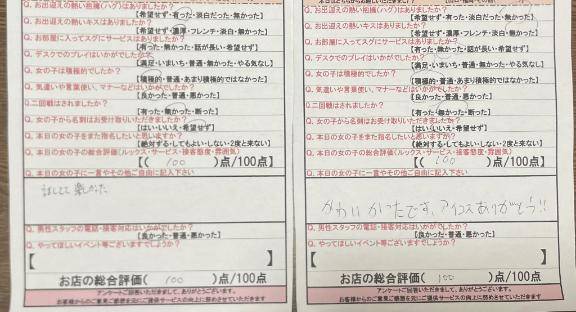 Q. お出迎えの熱い抱擁(ハグ)はありましたか?
【希望せず・有った・淡白だった・無かった】
Q. お出迎えの熱いキスはありましたか?
【希望せず・濃厚・フレンチ・淡白・無かった】
Q. お部屋に入ってスグにサービスは有りましたか?
【有った・無かった・話が長い・希望せず】
Q. デスクでのプレイはいかがでしたか?
【満足・いまいち・普通・無かった・やる気なし】
Q. 女の子は積極的でしたか?
【積極的・普通・あまり積極的ではなかった】
Q. 気遣いや言葉使い、マナーなどはいかがでしたか?
【良かった・普通・悪かった】
Q. 二回戦はされましたか?
【有った・無かった・断った】
Q. 女の子から名刺はお受け取りいただきましたか?
【はい・いいえ・希望せず】
Q. 本日の女の子をまた指名したいと思いますか?
【絶対する・してもよい・しない・2度と来ない】
Q. 本日の女の子の総合評価(ルックス・サービス・接客態度・雰囲気)
【( 100 )点/100点】
Q. 本日の女の子に一言やその他ご自由に記入下さい
楽しかった
Q. 男性スタッフの電話・接客対応はいかがでしたか?
【良かった・普通・悪かった】
Q. やってほしいイベント等ございますでしょうか?
【 】
お店の総合評価( 100 )点/100点
アンケートご回答いただきまして、ありがとうございます。
お客様からのご意見ご感想を元にご提供サービスの向上に努めさせていただきます
Q. お出迎えの熱い抱擁(ハグ)はありましたか?
【希望せず・有った・淡白だった・無かった】
Q. お出迎えの熱いキスはありましたか?
【希望せず・濃厚・フレンチ・淡白・無かった】
Q. お部屋に入ってスグにサービスは有りましたか?
【有った・無かった・話が長い・希望せず】
Q. デスクでのプレイはいかがでしたか?
【満足・いまいち・普通・無かった・やる気なし】
Q. 女の子は積極的でしたか?
【積極的・普通・あまり積極的ではなかった】
Q. 気遣いや言葉使い、マナーなどはいかがでしたか?
【良かった・普通・悪かった】
Q. 二回戦はされましたか?
【有った・無かった・断った】
Q. 女の子から名刺はお受け取りいただきましたか?
【はい・いいえ・希望せず】
Q. 本日の女の子をまた指名したいと思いますか?
【絶対する・してもよい・しない・2度と来ない】
Q. 本日の女の子の総合評価(ルックス・サービス・接客態度・雰囲気)
【( 100 )点/100点】
Q. 本日の女の子に一言やその他ご自由に記入下さい
かわいかったです、アイコスありがとう!!
Q. 男性スタッフの電話・接客対応はいかがでしたか?
【良かった・普通・悪かった】
Q. やってほしいイベント等ございますでしょうか?
【 】
お店の総合評価( 100 )点/100点
アンケートご回答いただきまして、ありがとうございます。
お客様からのご意見ご感想を元にご提供サービスの向上に努めさせていただきます